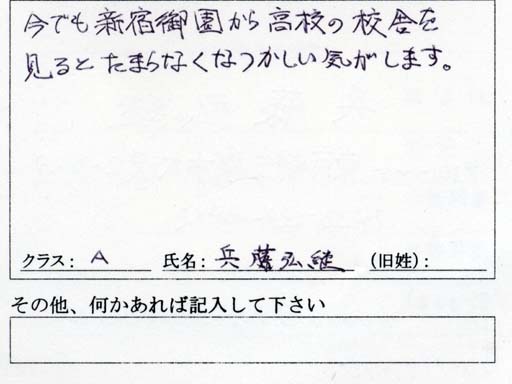 今でも新宿御園から高校の校舎を
見るとたまらなくなつかしい気がします。
クラス: A 氏名: 兵藤弘継 (旧姓):
その他、何かあれば記入して下さい